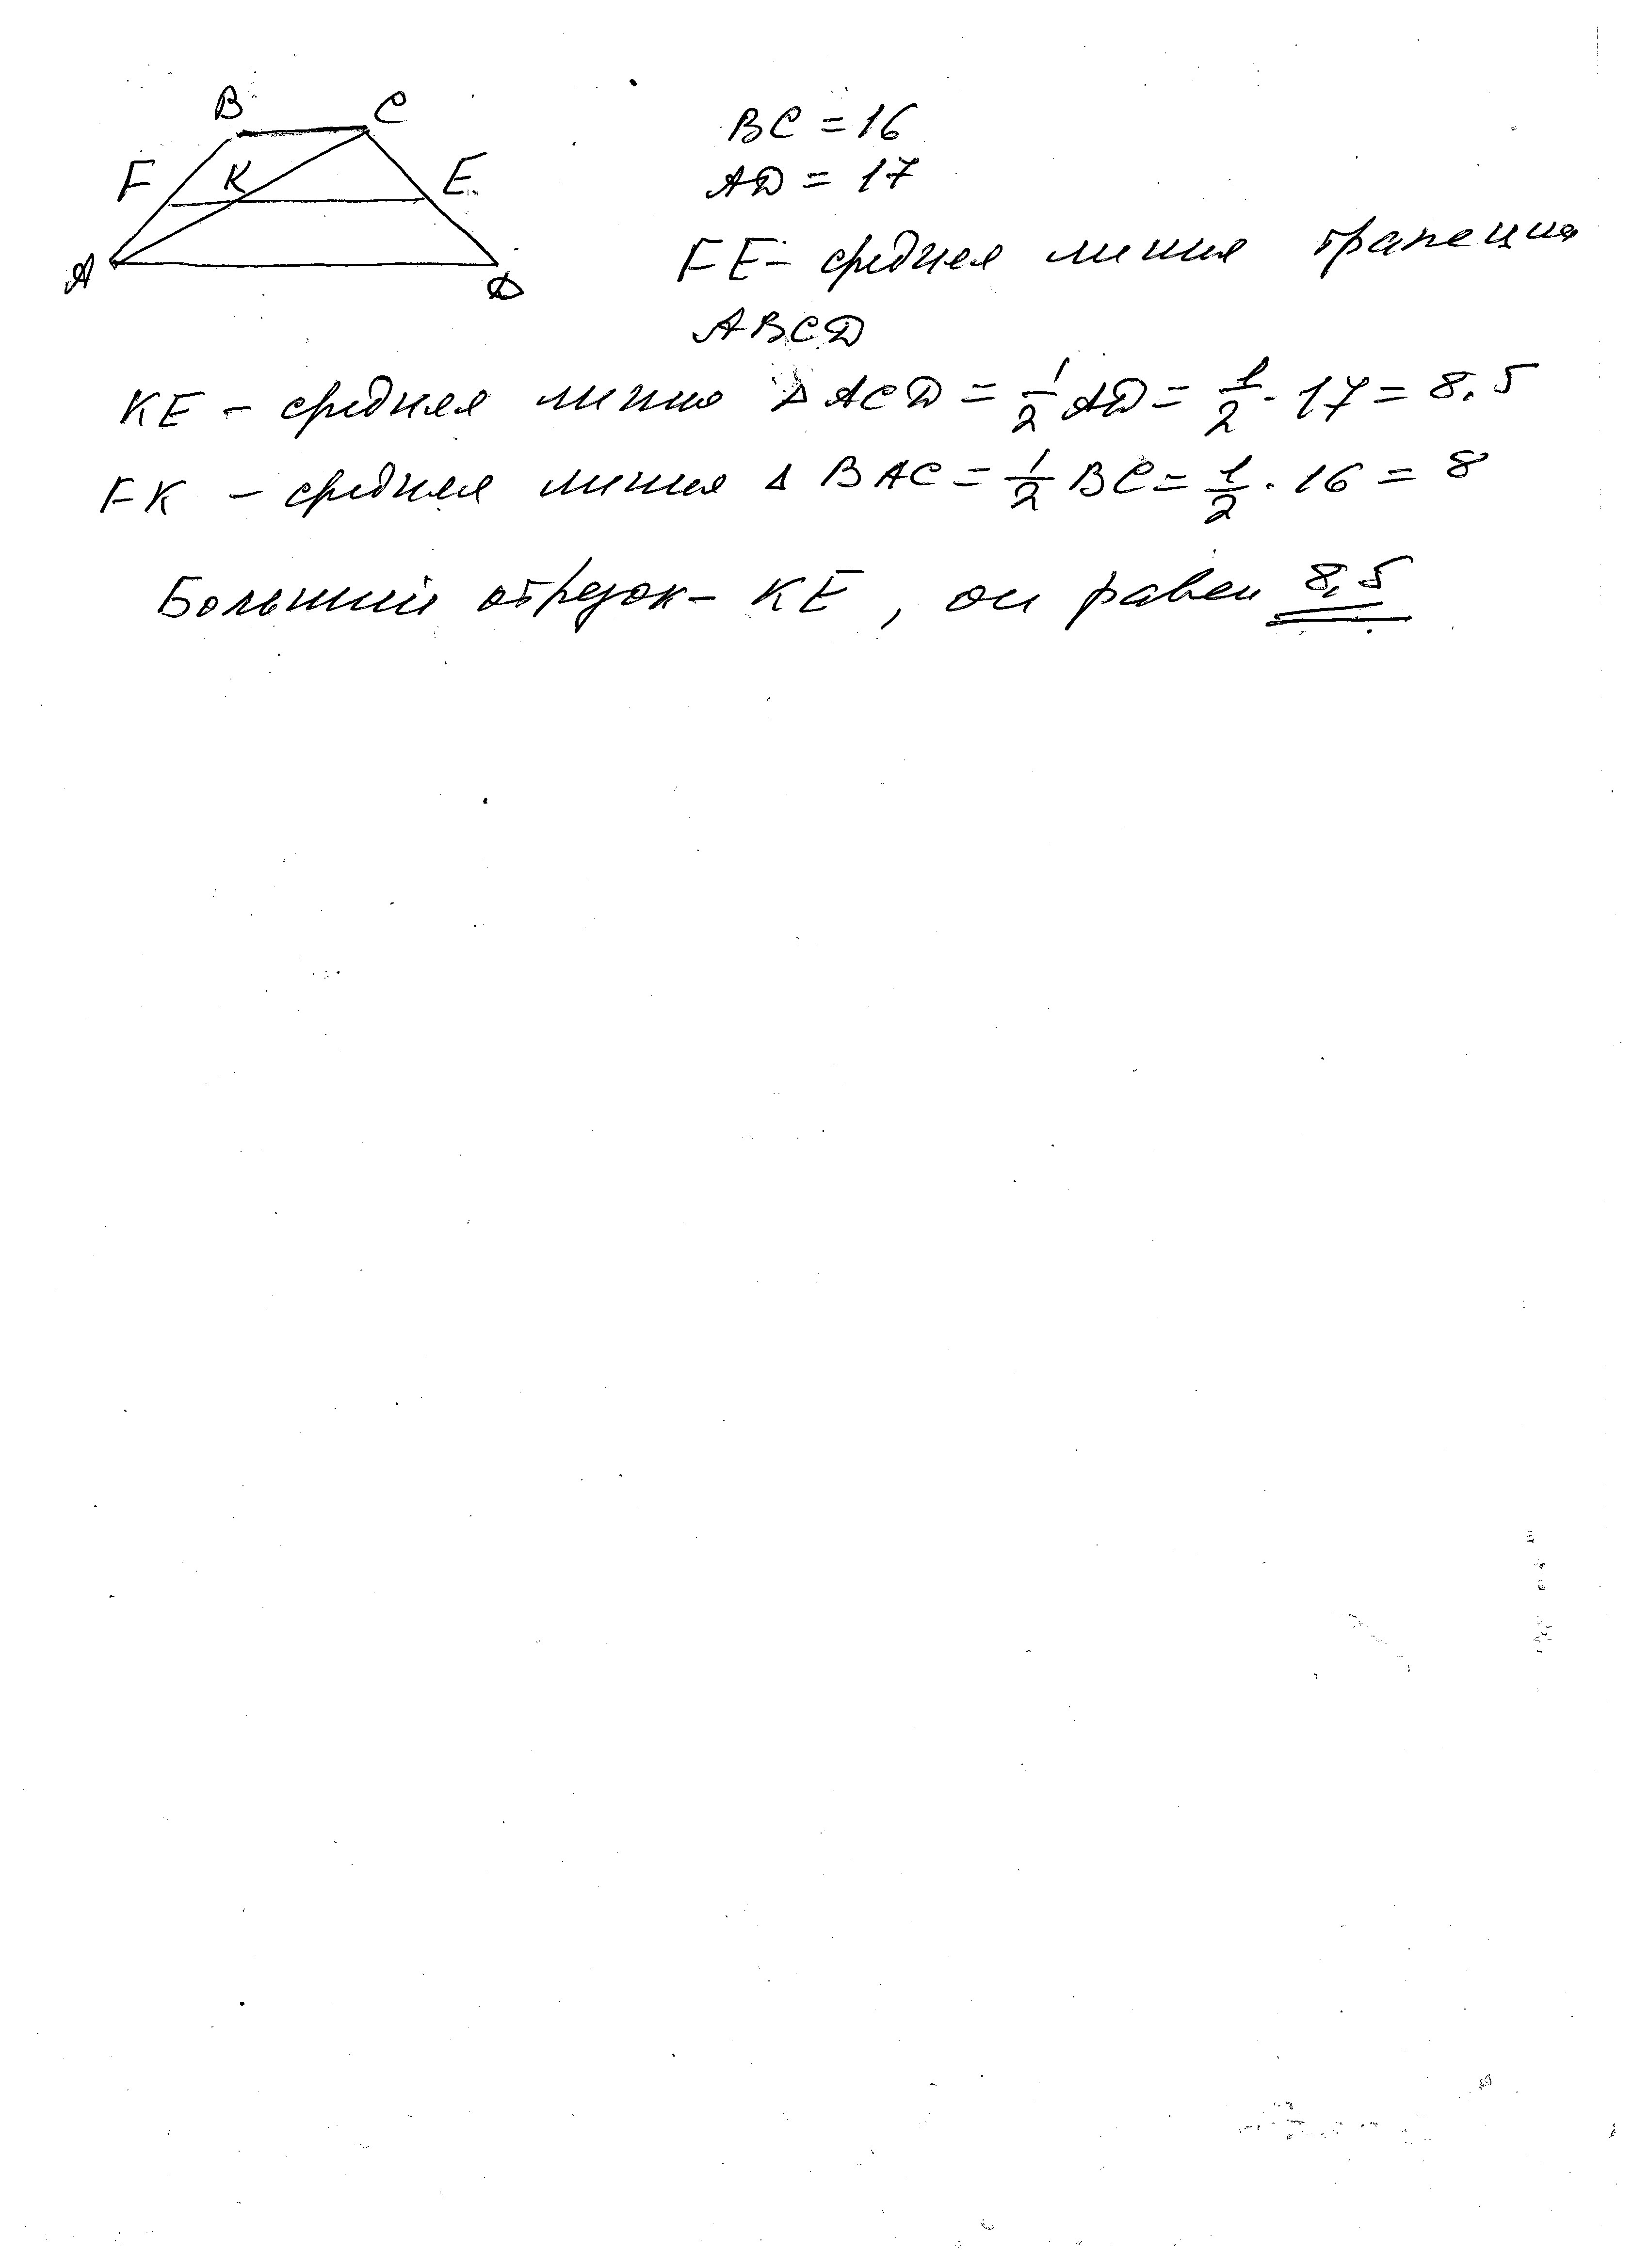 B C
F K E
A D
BC = 16
AD = 17
FE - средняя линия трапеции
ABCD
KE - средняя линия Δ ACD = 1/2 AD = 1/2 · 17 = 8.5
FK - средняя линия Δ BAC = 1/2 BC = 1/2 · 16 = 8
Больший отрезок - KE, он равен 8,5